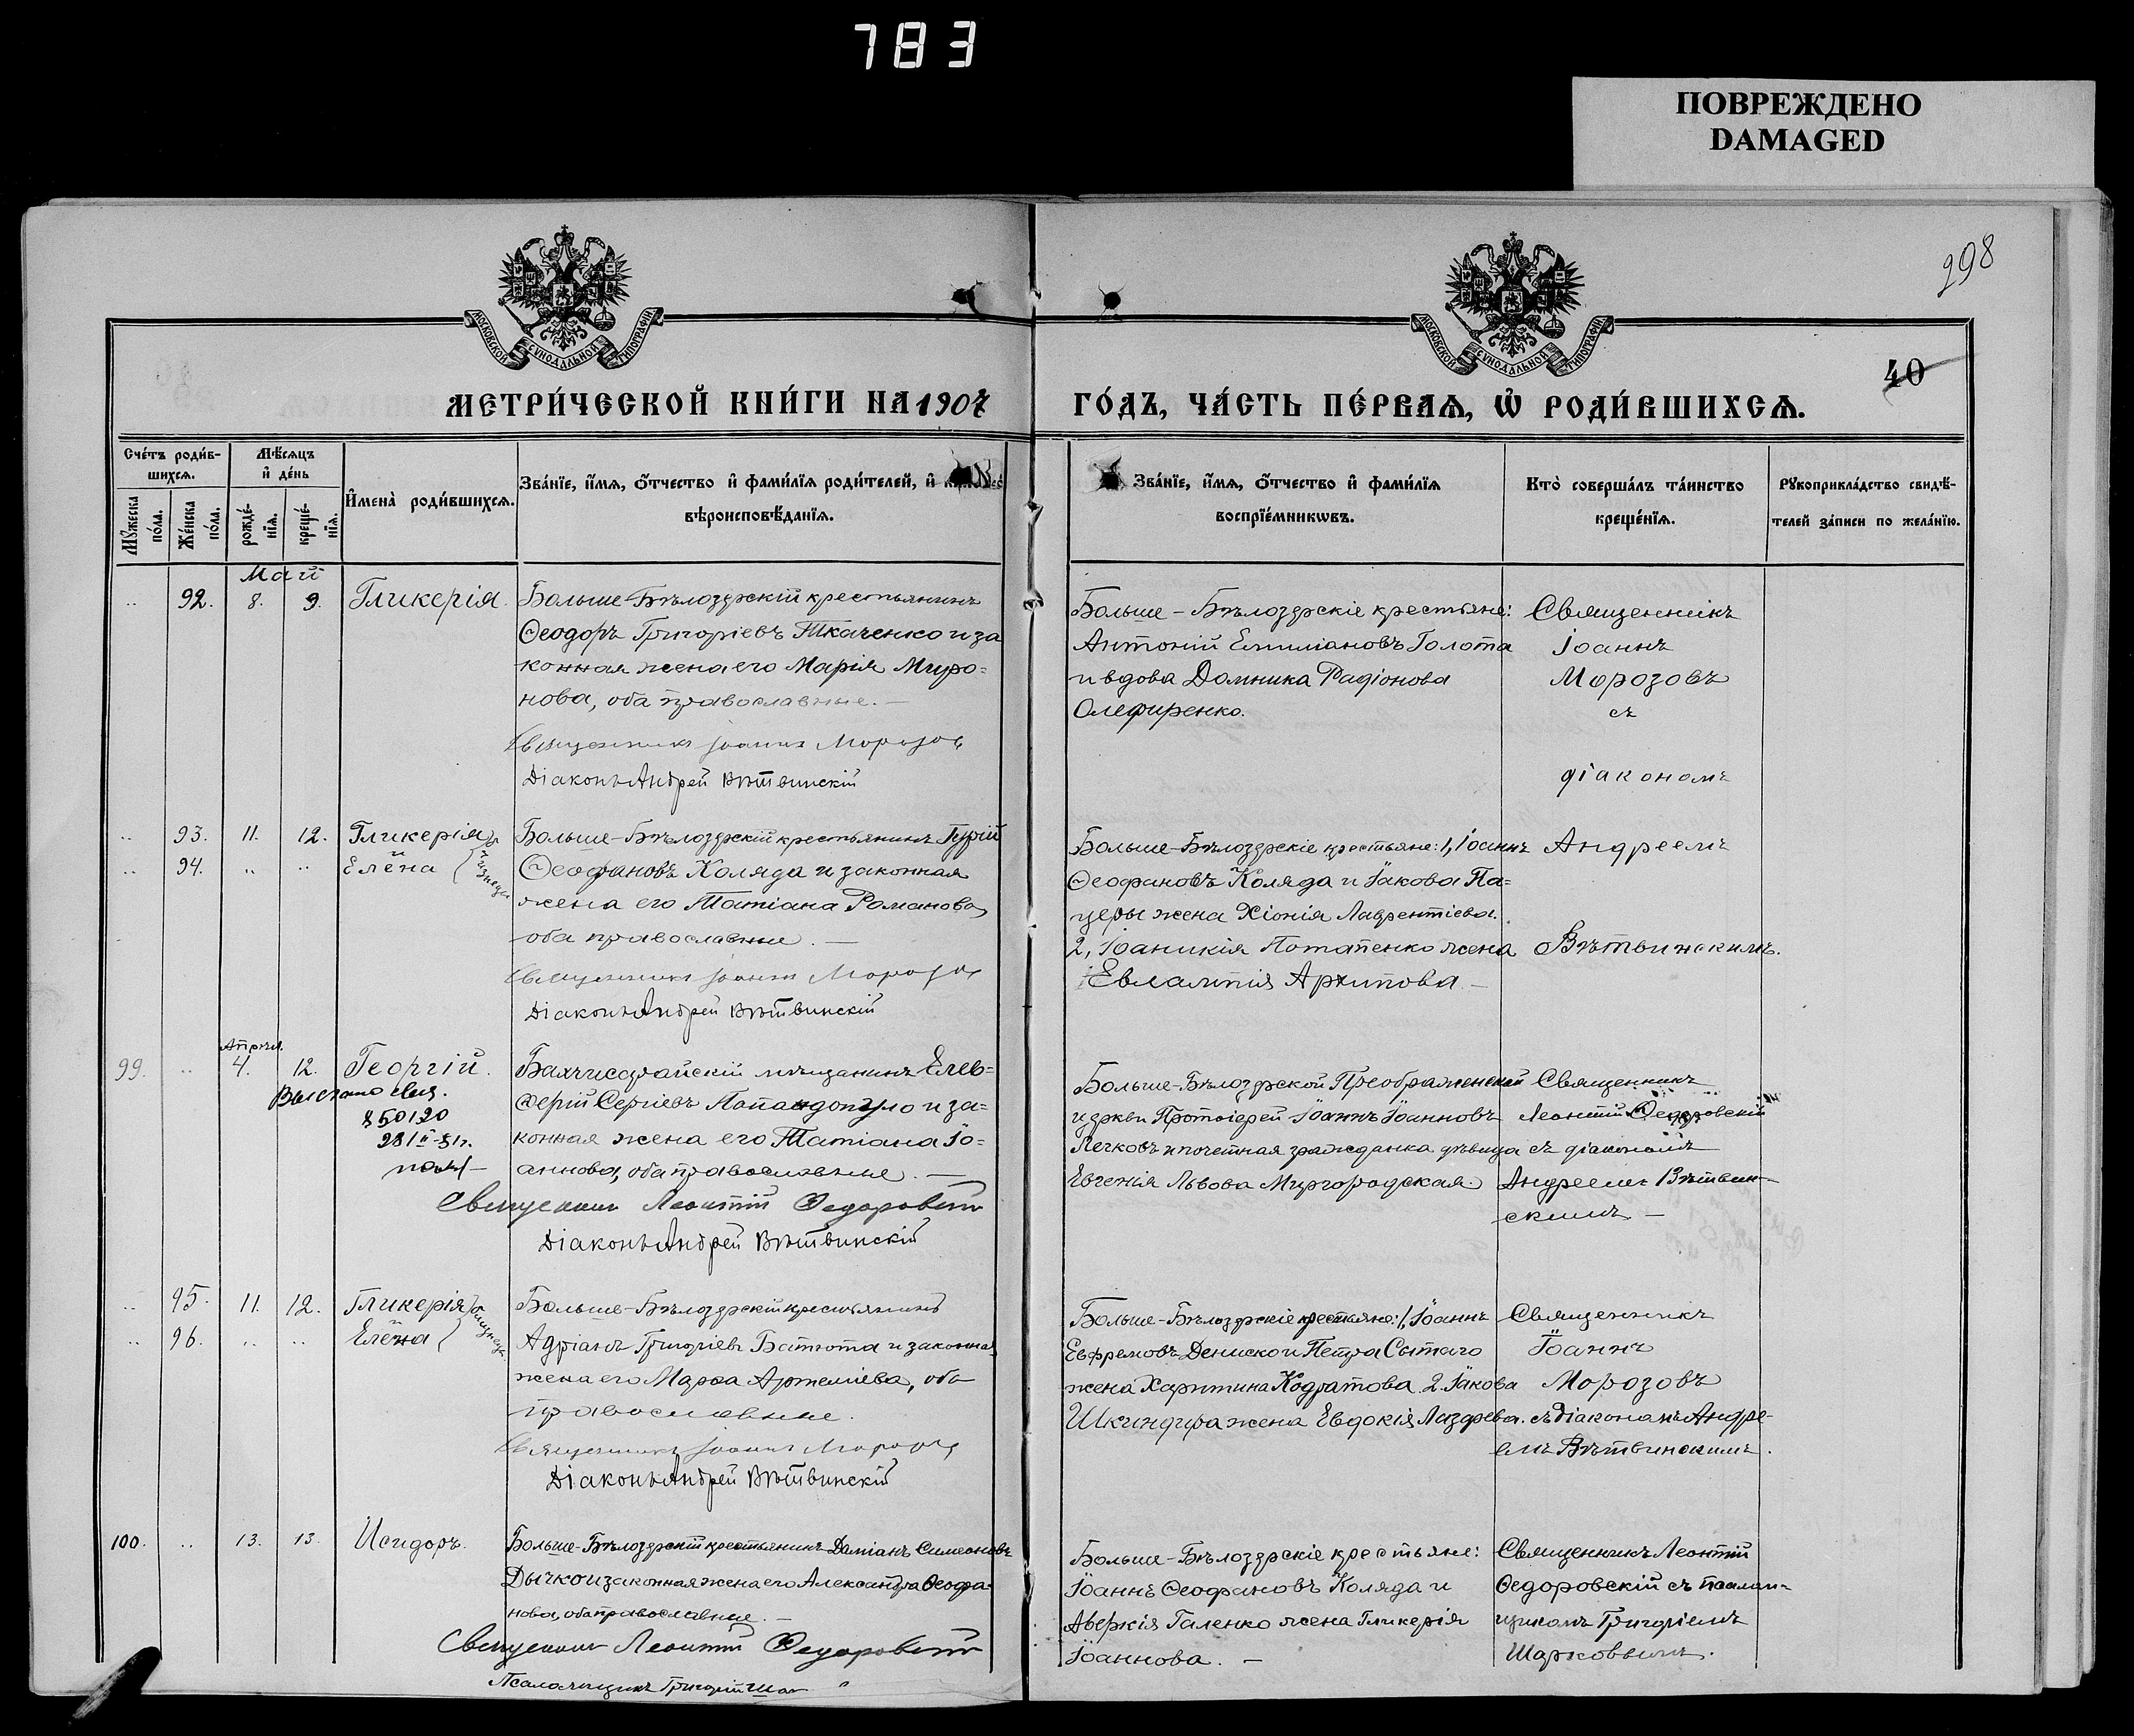 783
ПОВРЕЖДЕНО
DAMAGED
298
МОСКОВСКОЙ СѴНОДАЛЬНОЙ ТИПОГРАФІИ
МОСКОВСКОЙ СѴНОДАЛЬНОЙ ТИПОГРАФІИ
40
МЕТРИ́ЧЕСКОЙ КНИ́ГИ НА 1907
ГО́ДЪ, ЧА́СТЬ ПЕ́РВАѦ, Ѡ҆ РОДИ́ВШИХСѦ.
Сче́тъ роди́в-
шихсѧ.
Мѣ́сѧцъ
и҆ де́нь
Мꙋ́жеска по́ла.
Же́нска по́ла.
рожде́-нїѧ.
креще́-нїѧ.
И҆мена̀ роди́вшихсѧ.
Зва́нїе, и҆́мѧ, ѻ҆́тчество и҆ фами́лїѧ роди́телей, и҆
вѣроисповѣ́данїѧ.
Зва́нїе, и҆́мѧ, ѻ҆́тчество и҆ фами́лїѧ
воспрїе́мникѡвъ.
Кто̀ соверша́лъ та́инство
креще́нїѧ.
Рꙋкоприкла́дство свидѣ́-
телей за́писи по жела́нїю.
Май
.. 92. 8. 9. Гликерія.
Больше-Бѣлозерскій крестьянинъ
Ѳеодоръ Григоріевъ Ткаченко и за
конная жена его Марія Миро=
нова, оба православные. —
Священникъ Іоаннъ Морозов
Діаконъ Андрей Вѣтвинскій
Больше-Бѣлозерскіе крестьяне:
Антоній Емиліановъ Голота
и вдова Домника Радіонова
Олефиренко.
Священникъ
Іоаннъ
Морозовъ
съ
діакономъ
.. 93. 11. 12. Гликерія
.. 94. .. .. Елена
близнецы
Больше-Бѣлозерскій крестьянинъ Гурій
Ѳеофановъ Коляда и законная
жена его Татіана Романова,
оба православные. —
Священникъ Іоаннъ Морозов
Діаконъ Андрей Вѣтвинскій
Больше-Бѣлозерскіе крестьяне: 1, Іоаннъ
Ѳеофановъ Коляда и Іакова Па=
церы жена Хіонія Лаврентіева.
2, Іоаникія Потапенко жена
Евлампія Архипова —
Андреемъ
Вѣтвинскимъ.
Апрѣля.
99. .. 4. 12. Георгій.
850120
Бахчисарайскій мѣщанинъ Елев=
ѳерій Сергіевъ Папандопуло и за=
конная жена его Татіана Іо=
аннова, оба православные. —
Священник Леонтій Ѳедоровскій
Діаконъ Андрей Вѣтвинскій
Больше-Бѣлозерской Преображенской
церкви Протоіерей Іоаннъ Іоанновъ
Легковъ и почетная гражданка дѣвица
Евгенія Львова Миргородская.
Священникъ
Леонтій Ѳедоровскій
съ діакономъ
Андреемъ Вѣтвин-
скимъ —
.. 95. 11. 12. Гликерія
.. 96. .. .. Елена
близнецы
Больше-Бѣлозерскій крестьянинъ
Адріанъ Григоріевъ Батюта и законная
жена его Марѳа Артеміева, оба
православные.
Священникъ Іоаннъ Морозов
Діаконъ Андрей Вѣтвинскій
Больше-Бѣлозерскіе крестьяне: 1, Іоаннъ
Евфремовъ Дениско и Петра Сытаго
жена Харитина Кодратова. 2. Іакова
Шкиндира жена Евдокія Лазарева.
Священникъ
Іоаннъ
Морозовъ
съ Діакономъ Андре-
емъ Вѣтвинскимъ.
100. .. 13. 13. Исидоръ.
Больше-Бѣлозерскій крестьянинъ Даміанъ Симеоновъ
Дычко и законная жена его Александра Ѳеофа-
нова, оба православные. —
Священник Леонтій Ѳедоровскій
Псаломщикъ Григорій
Больше-Бѣлозерскіе крестьяне:
Іоаннъ Ѳеофановъ Коляда и
Аверкія Галенко жена Гликерія
Іоаннова. —
Священникъ Леонтій
Ѳедоровскій съ псалом-
щикомъ Григоріемъ
Шарковымъ.